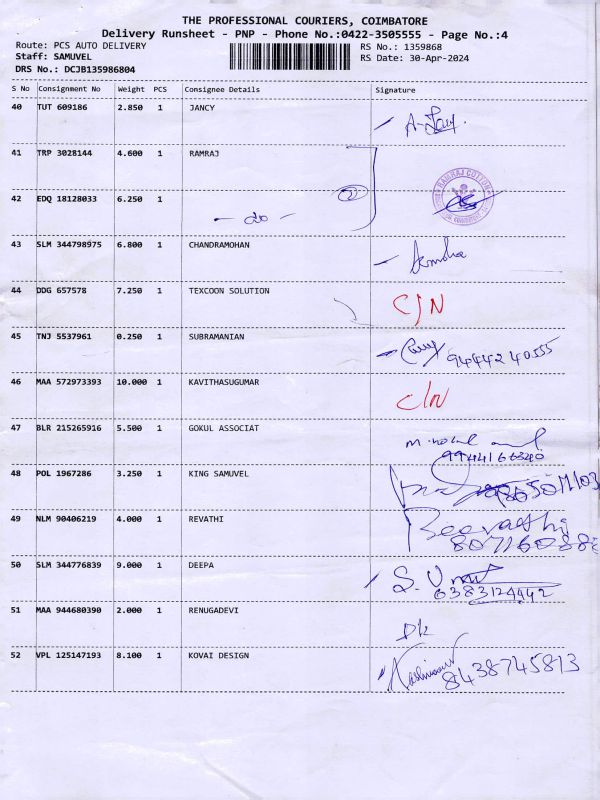 THE PROFESSIONAL COURIERS, COIMBATORE
Delivery Runsheet - PNP - Phone No.:0422-3505555 - Page No.:4
Route: PCS AUTO DELIVERY RS No.: 1359868
Staff: SAMUVEL RS Date: 30-Apr-2024
DRS No.: DCJB135986804
S No Consignment No Weight PCS Consignee Details Signature
40 TUT 609186 2.850 1 JANCY
41 TRP 3028144 4.600 1 RAMRAJ
RAMRAJ COTTON
42 EDQ 18128033 6.250 1
- do -
43 SLM 344798975 6.800 1 CHANDRAMOHAN
44 DDG 657578 7.250 1 TEXCOON SOLUTION
C/N
45 TNJ 5537961 0.250 1 SUBRAMANIAN
9444240555
46 MAA 572973393 10.000 1 KAVITHASUGUMAR
C/N
47 BLR 215265916 5.500 1 GOKUL ASSOCIAT
48 POL 1967286 3.250 1 KING SAMUVEL
49 NLM 90406219 4.000 1 REVATHI
Reevathi
50 SLM 344776839 9.000 1 DEEPA
6383124442
51 MAA 944680390 2.000 1 RENUGADEVI
52 VPL 125147193 8.100 1 KOVAI DESIGN
8438745813